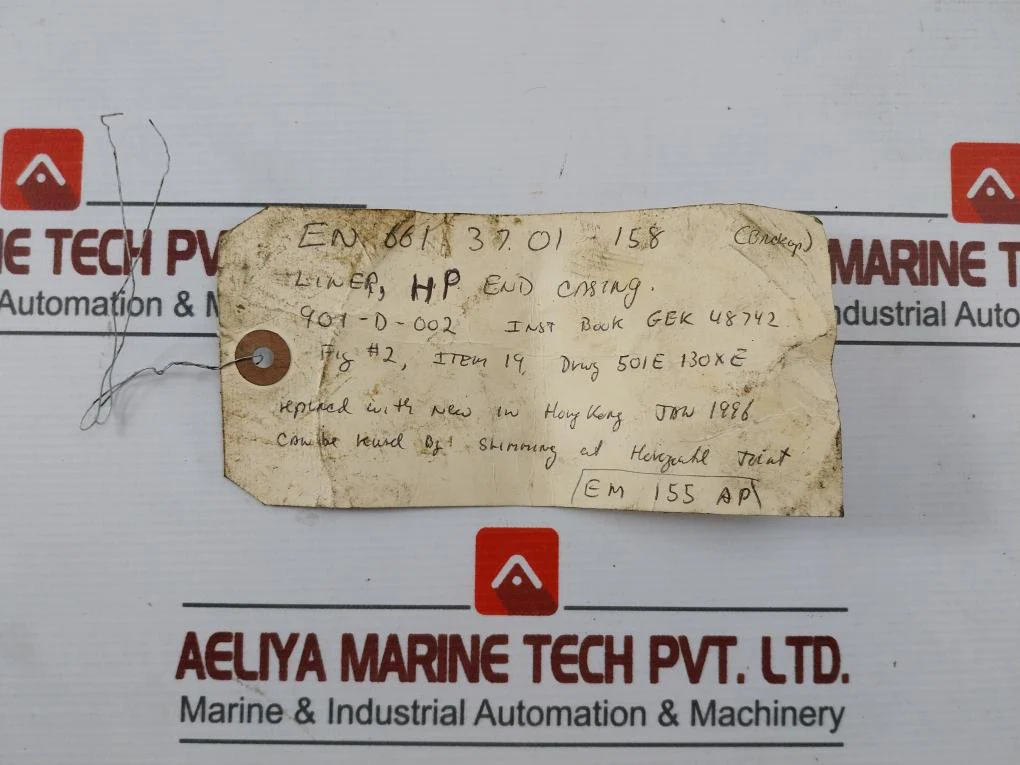 EN 661 37.01 - 158 (Backup)
LINER, HP END CASING.
901-D-002 INST BOOK GEK 48742
Fig #2, ITEM 19, Drwg 501E 130XE
replaced with New in Hong Kong JAN 1996
CAN be reused By Shimming at Horizontal Joint
EM 155 AP
NE TECH PV
Automation & M
MARINE T
ndustrial Auto
AELIYA MARINE TECH PVT. LTD.
Marine & Industrial Automation & Machinery